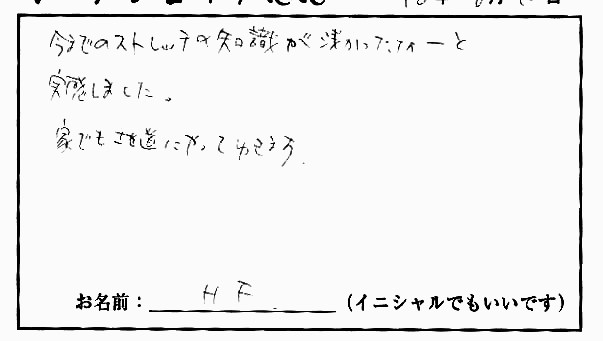 今までのストレッチの知識が浅かったなーと
実感しました。
家でも地道にやってみます。
お名前： H F （イニシャルでもいいです）